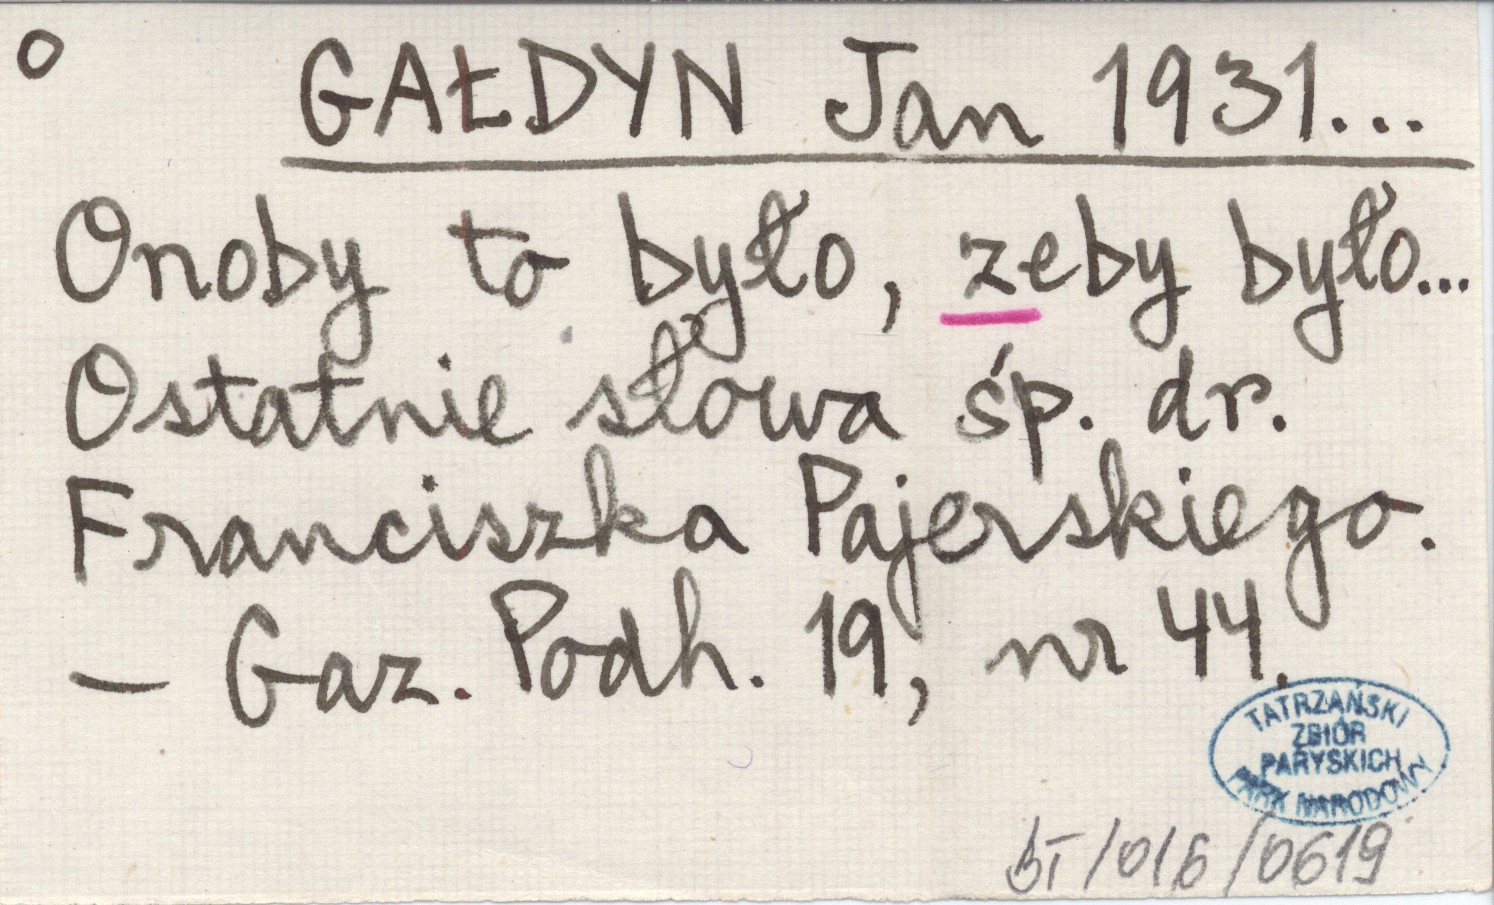 O
GAŁDYN Jan 1931...
Onoby to było, zeby było...
Ostatnie słowa śp. dr.
Franciszka Pajerskiego.
– Gaz. Podh. 19, nr 44.
TATRZAŃSKI
ZBIÓR
PARYSKICH
PARK NARODOWY
BT/016/0619